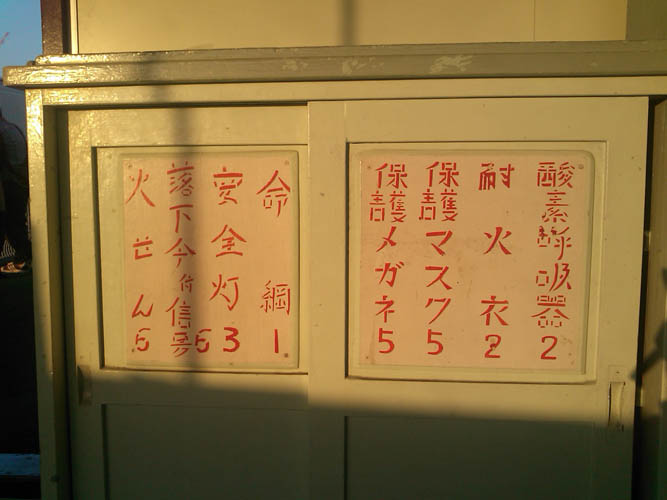 酸素呼吸器2
耐火衣2
保護マスク5
保護メガネ5
命綱1
安全灯3
落下傘付信号6
火せん6